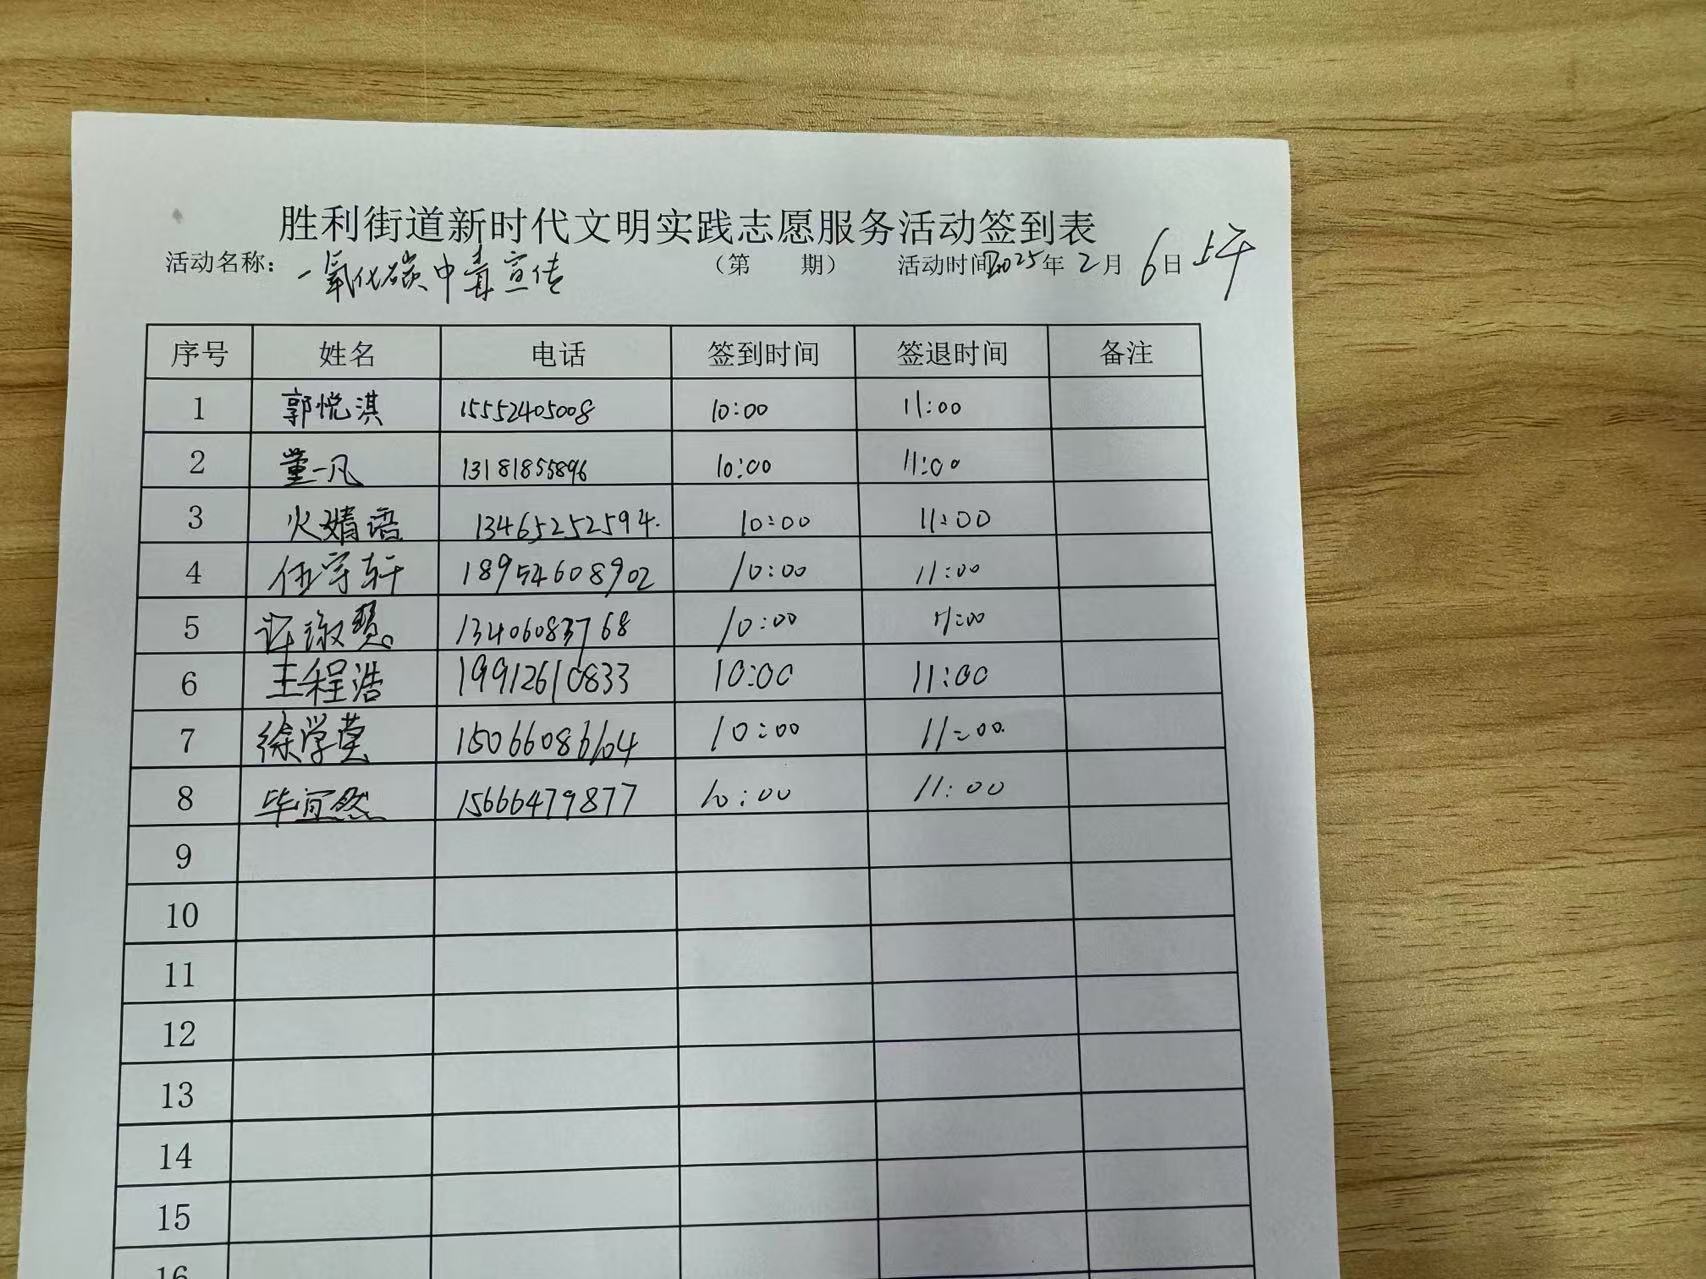 胜利街道新时代文明实践志愿服务活动签到表
活动名称：一氧化碳中毒宣传 （第 期） 活动时间2025年2月6日上午
序号 姓名 电话 签到时间 签退时间 备注
1 郭悦淇 15552405008 10:00 11:00
2 董一凡 13181855896 10:00 11:00
3 火婧语 13465252594. 10:00 11:00
4 伍宇轩 18954608902 10:00 11:00
5 许淑慧 13406083768 10:00 11:00
6 王程浩 19912610833 10:00 11:00
7 徐学莹 15066086104 10:00 11:00
8 毕宜然 15666479877 10:00 11:00
9
10
11
12
13
14
15
16